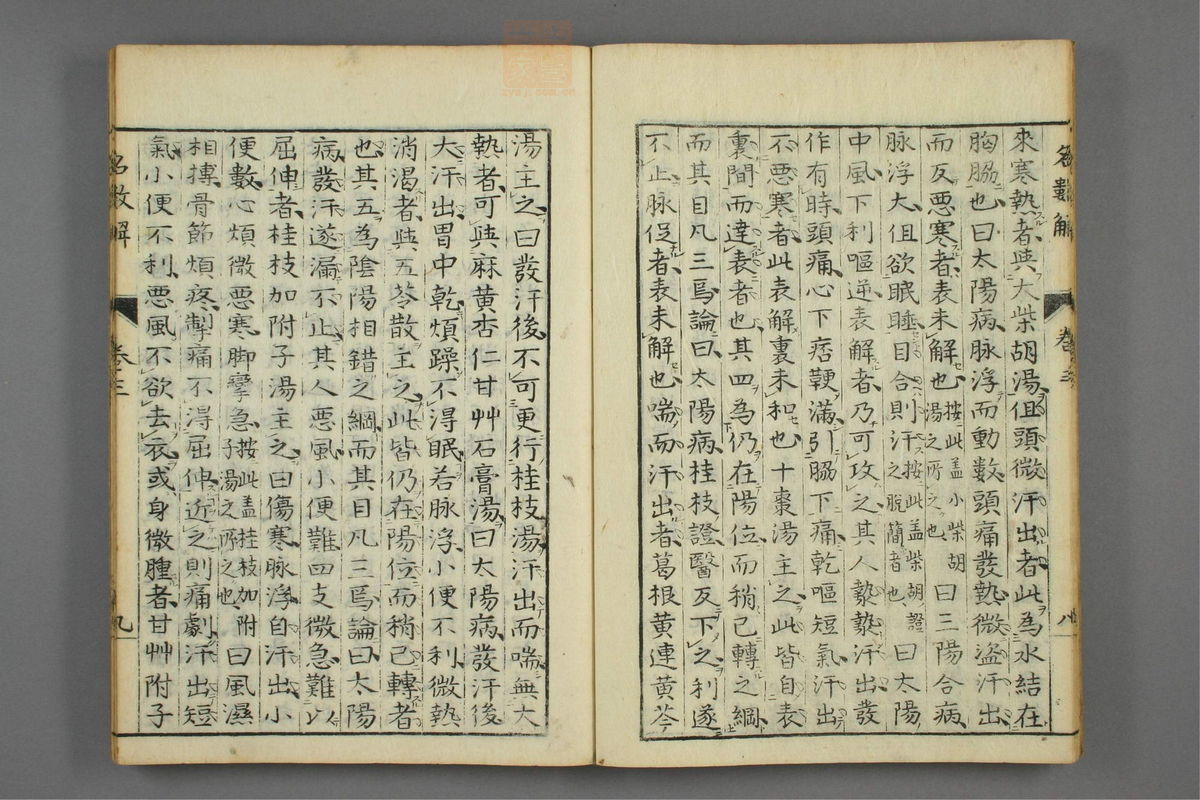 名數解 卷三 八
來寒熱者與大柴胡湯但頭微汗出者此為水結在
胸脇也曰太陽病脉浮而動數頭痛發熱微盜汗出
而反惡寒者表未解也按此盖小柴胡湯之所之也曰三陽合病
脉浮大但欲眠睡目合則汗按此盖柴胡證之脫簡者也曰太陽
中風下利嘔逆表解者乃可攻之其人漐漐汗出發
作有時頭痛心下痞鞕滿引脇下痛乾嘔短氣汗出
不惡寒者此表解裏未和也十棗湯主之此皆自表
裏間而達表者也其四為仍在陽位而稍已轉之綱
而其目凡三焉論曰太陽病桂枝證醫反下之利遂
不止脉促者表未解也喘而汗出者葛根黃連黃芩
湯主之曰發汗後不可更行桂枝湯汗出而喘無大
熱者可與麻黃杏仁甘艸石膏湯曰太陽病發汗後
大汗出胃中乾煩躁不得眠若脉浮小便不利微熱
消渴者與五苓散主之此皆仍在陽位而稍已轉者
也其五為陰陽相錯之綱而其目凡三焉論曰太陽
病發汗遂漏不止其人惡風小便難四支微急難以
屈伸者桂枝加附子湯主之曰傷寒脉浮自汗出小
便數心煩微惡寒脚攣急按此盖桂枝加附子湯之所之也曰風濕
相摶骨節煩疼掣痛不得屈伸近之則痛劇汗出短
氣小便不利惡風不欲去衣或身微腫者甘艸附子
名數解 卷三 九